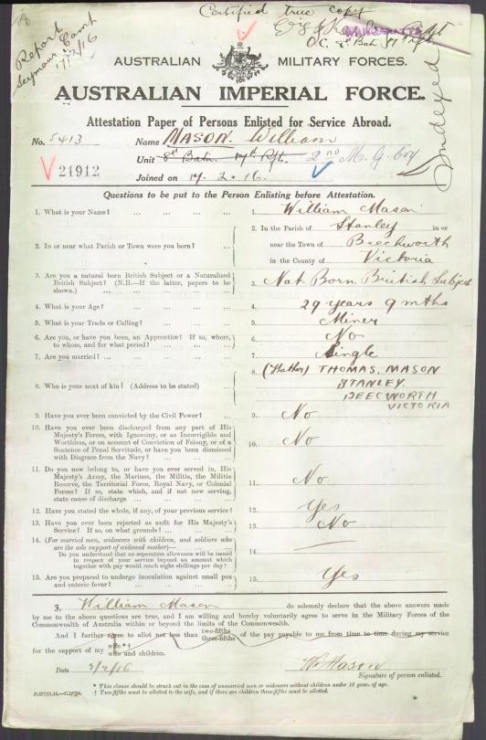 Certified true copy
O.C. 8th Bat.
Report
Seymour Camp
17/2/16
Indexed
AUSTRALIAN MILITARY FORCES.
AUSTRALIAN IMPERIAL FORCE.
Attestation Paper of Persons Enlisted for Service Abroad.
No. 5413 Name MASON William
V 21912 Unit 8th Batn. 17th Rft. 2nd M. G. Coy
Joined on 17. 2. 16.
Questions to be put to the Person Enlisting before Attestation.
1. What is your Name? ... ... ... ... 1. William Mason
2. In or near what Parish or Town were you born? ... 2. In the Parish of Stanley in or
near the Town of Beechworth
in the County of Victoria
3. Are you a natural born British Subject or a Naturalized
British Subject? (N.B.—If the latter, papers to be
shown.) ... ... 3. Nat. Born British Subject
4. What is your Age? ... ... ... ... 4. 29 years 9 mths
5. What is your Trade or Calling? ... ... ... 5. Miner
6. Are you, or have you been, an Apprentice? If so, where,
to whom, and for what period? ... ... ... 6. No
7. Are you married? ... ... ... ... 7. Single
8. Who is your next of kin? (Address to be stated) 8. (Father) THOMAS. MASON
STANLEY
BEECWORTH
VICTORIA
9. Have you ever been convicted by the Civil Power? ... 9. No
10. Have you ever been discharged from any part of His
Majesty's Forces, with Ignominy, or as Incorrigible and
Worthless, or on account of Conviction of Felony, or of a
Sentence of Penal Servitude, or have you been dismissed
with Disgrace from the Navy? ... ... ... 10. No
11. Do you now belong to, or have you ever served in, His
Majesty's Army, the Marines, the Militia, the Militia
Reserve, the Territorial Force, Royal Navy, or Colonial
Forces? If so, state which, and if not now serving,
state cause of discharge ... ... ... 11. No
12. Have you stated the whole, if any, of your previous service? 12. Yes
13. Have you ever been rejected as unfit for His Majesty's
Service? If so, on what grounds? ... ... ... 13. No
14. (For married men, widowers with children, and soldiers who
are the sole support of widowed mother)—
Do you understand that no separation allowance will be issued
in respect of your service beyond an amount which
together with pay would reach eight shillings per day? 14. —
15. Are you prepared to undergo inoculation against small pox
and enteric fever? ... ... ... ... 15. Yes
3. William Mason do solemnly declare that the above answers made
by me to the above questions are true, and I am willing and hereby voluntarily agree to serve in the Military Forces of the
Commonwealth of Australia within or beyond the limits of the Commonwealth.
And I further agree to allot not less than two-fifths three-fifths of the pay payable to me from time to time during my service
for the support of my wife and children.
Date 3/2/16 W. Mason
Signature of person enlisted.
* This clause should be struck out in the case of unmarried men or widowers without children under 18 years of age.
† Two-fifths must be allotted to the wife, and if there are children three-fifths must be allotted.